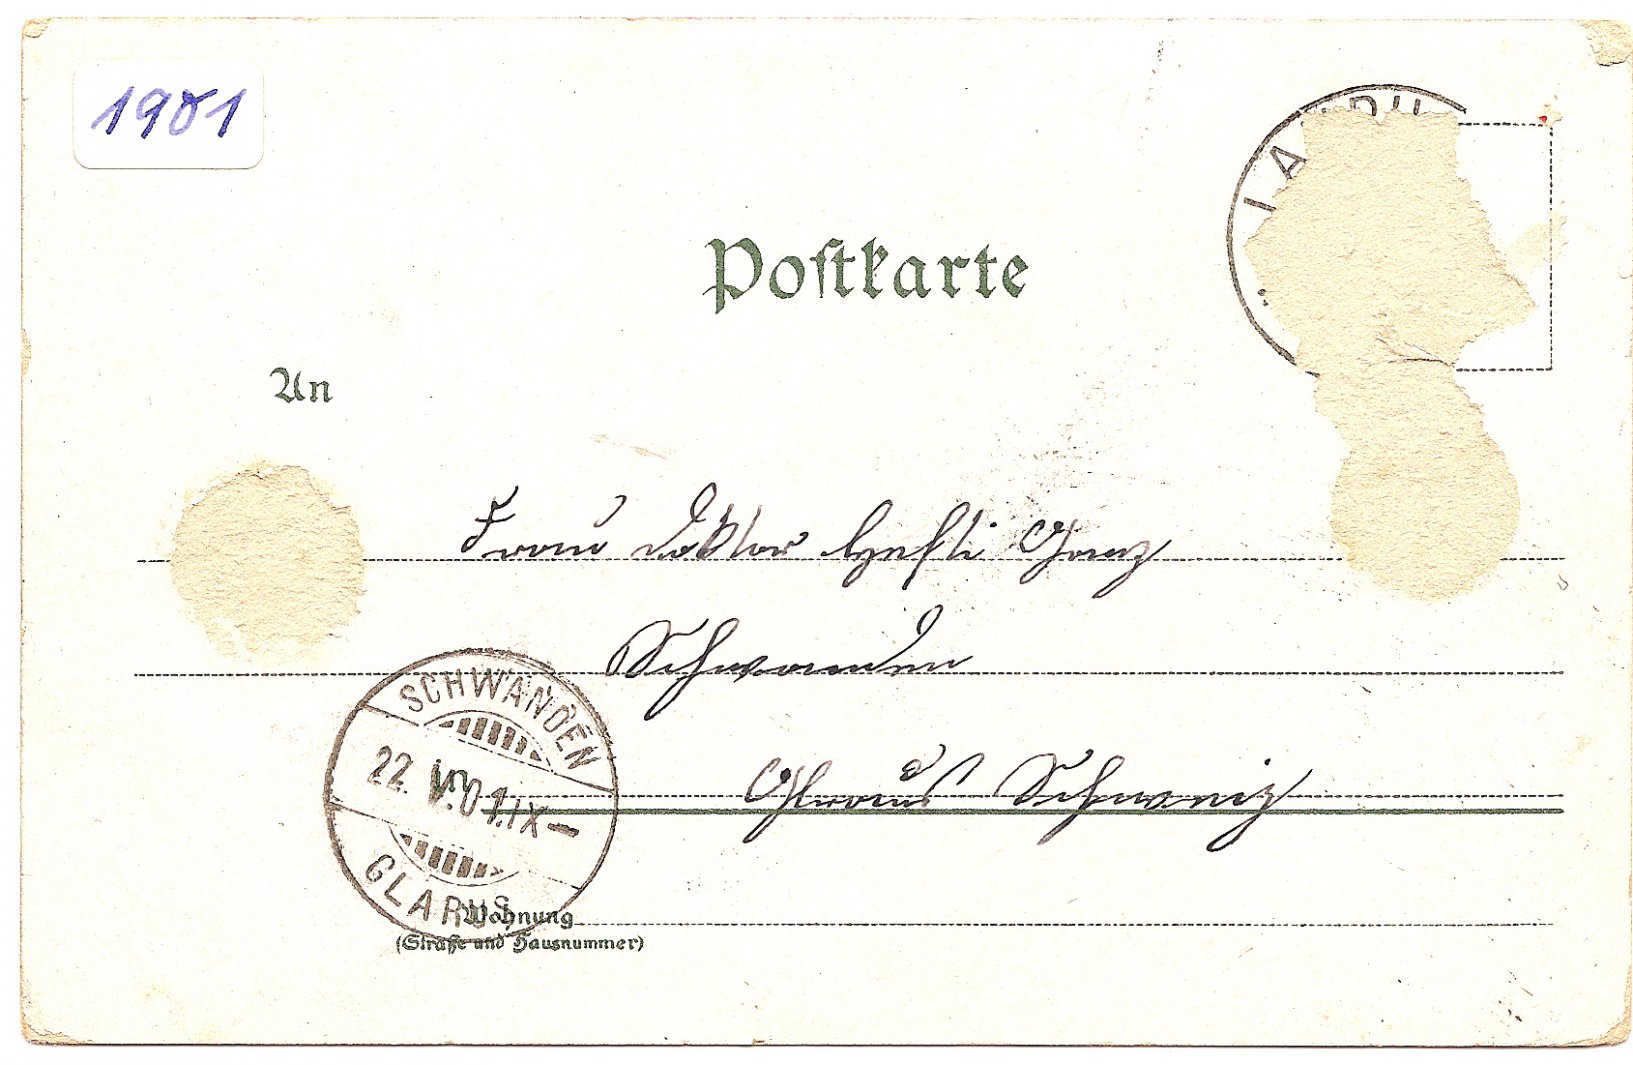 1901
Postkarte
An
Frau Doktor Hefti
Schwanden
Glarus Schweiz
SCHWANDEN
22. V. 01. IX-
GLARUS
Wohnung
(Straße und Hausnummer)